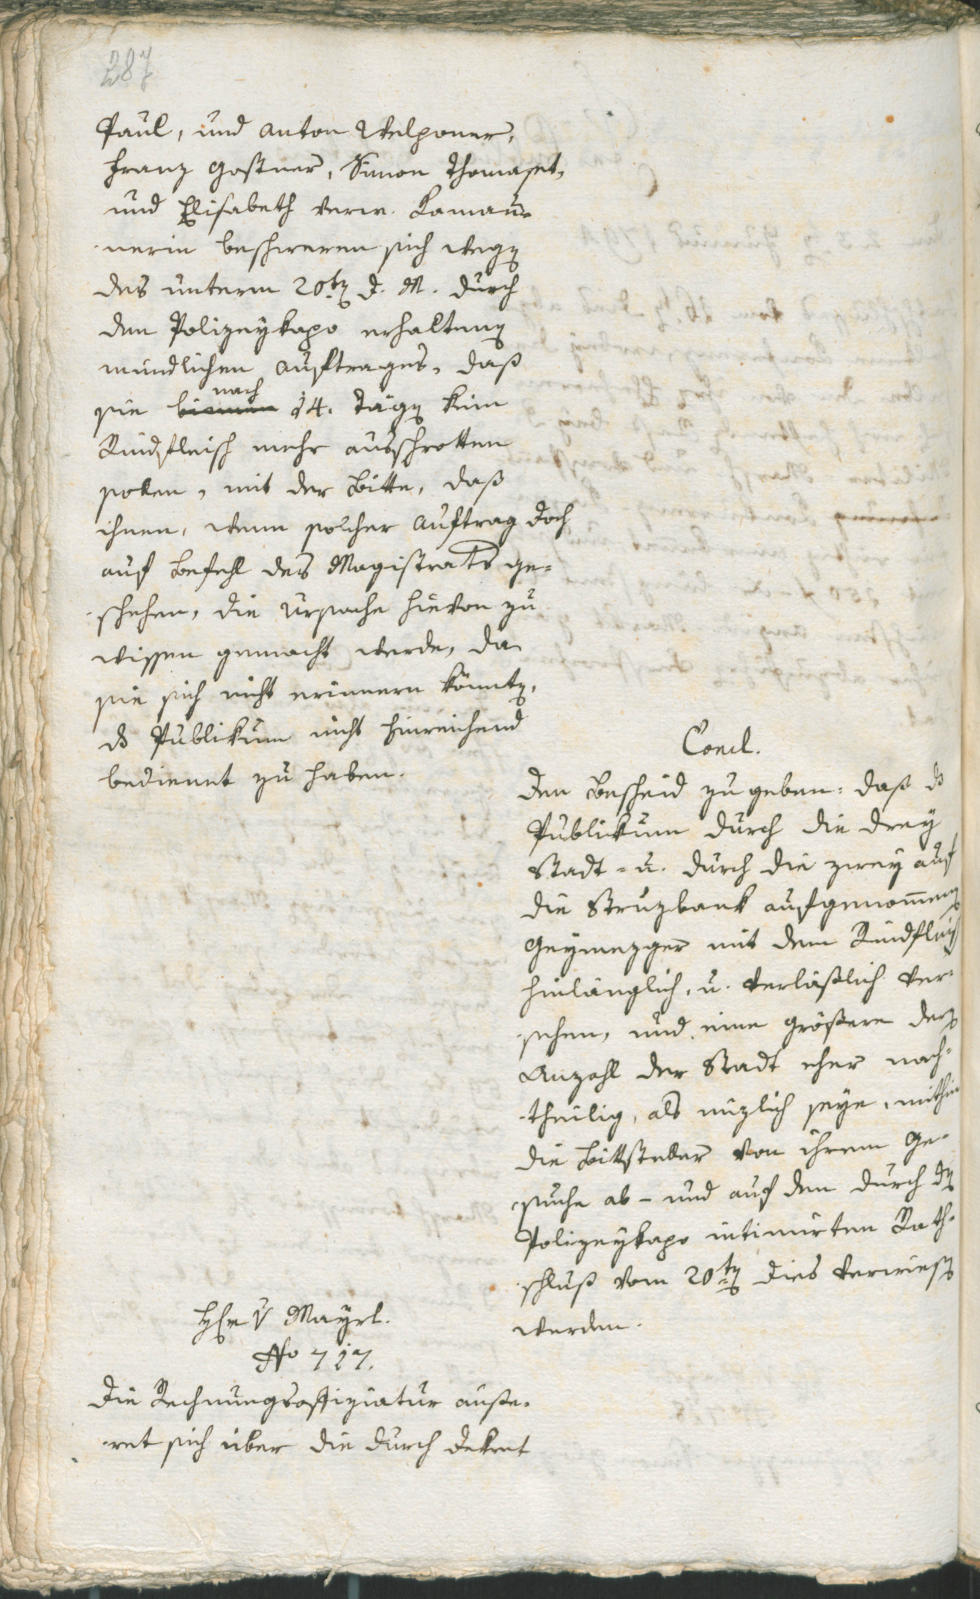 287
Paul, und Anton Welponer,
Franz Gostner, Simon Thomaset,
und Elisabeth verw. Lamau-
nerin beschweren sich wegen
des unterm 20ten d. M. durch
den Polizeykapo erhaltenen
mündlichen Auftrages, daß
sie binnen nach 14. Tagen kein
Rindfleisch mehr ausschrotten
sollen, mit der Bitte, daß
ihnen, wenn solcher Auftrag doch
auf Befehl des Magistrats ge-
schehen, die Ursache hievon zu
wissen gemacht werde, da
sie sich nicht erinnern könnten,
das Publikum nicht hinreichend
bedienet zu haben.
Concl.
Den Bescheid zu geben: daß das
Publikum durch die drey
Stadt- u. durch die zwey auf
die Stuzbank aufgenommenen
Geymezger mit dem Rindfleisch
hinlänglich, u. verläßlich ver-
sehen, und eine größere der
Anzahl der Stadt eher nach-
theilig, als nüzlich seye, mithin
die Bittsteller von ihrem Ge-
suche ab- und auf den durch den
Polizeykapo intimirten Rath-
schluß vom 20ten dies verwiesen
werden.
Hr v Mayrl.
No 717.
Die Rechnungsoffiziatur äuße-
ret sich über die durch Dekret